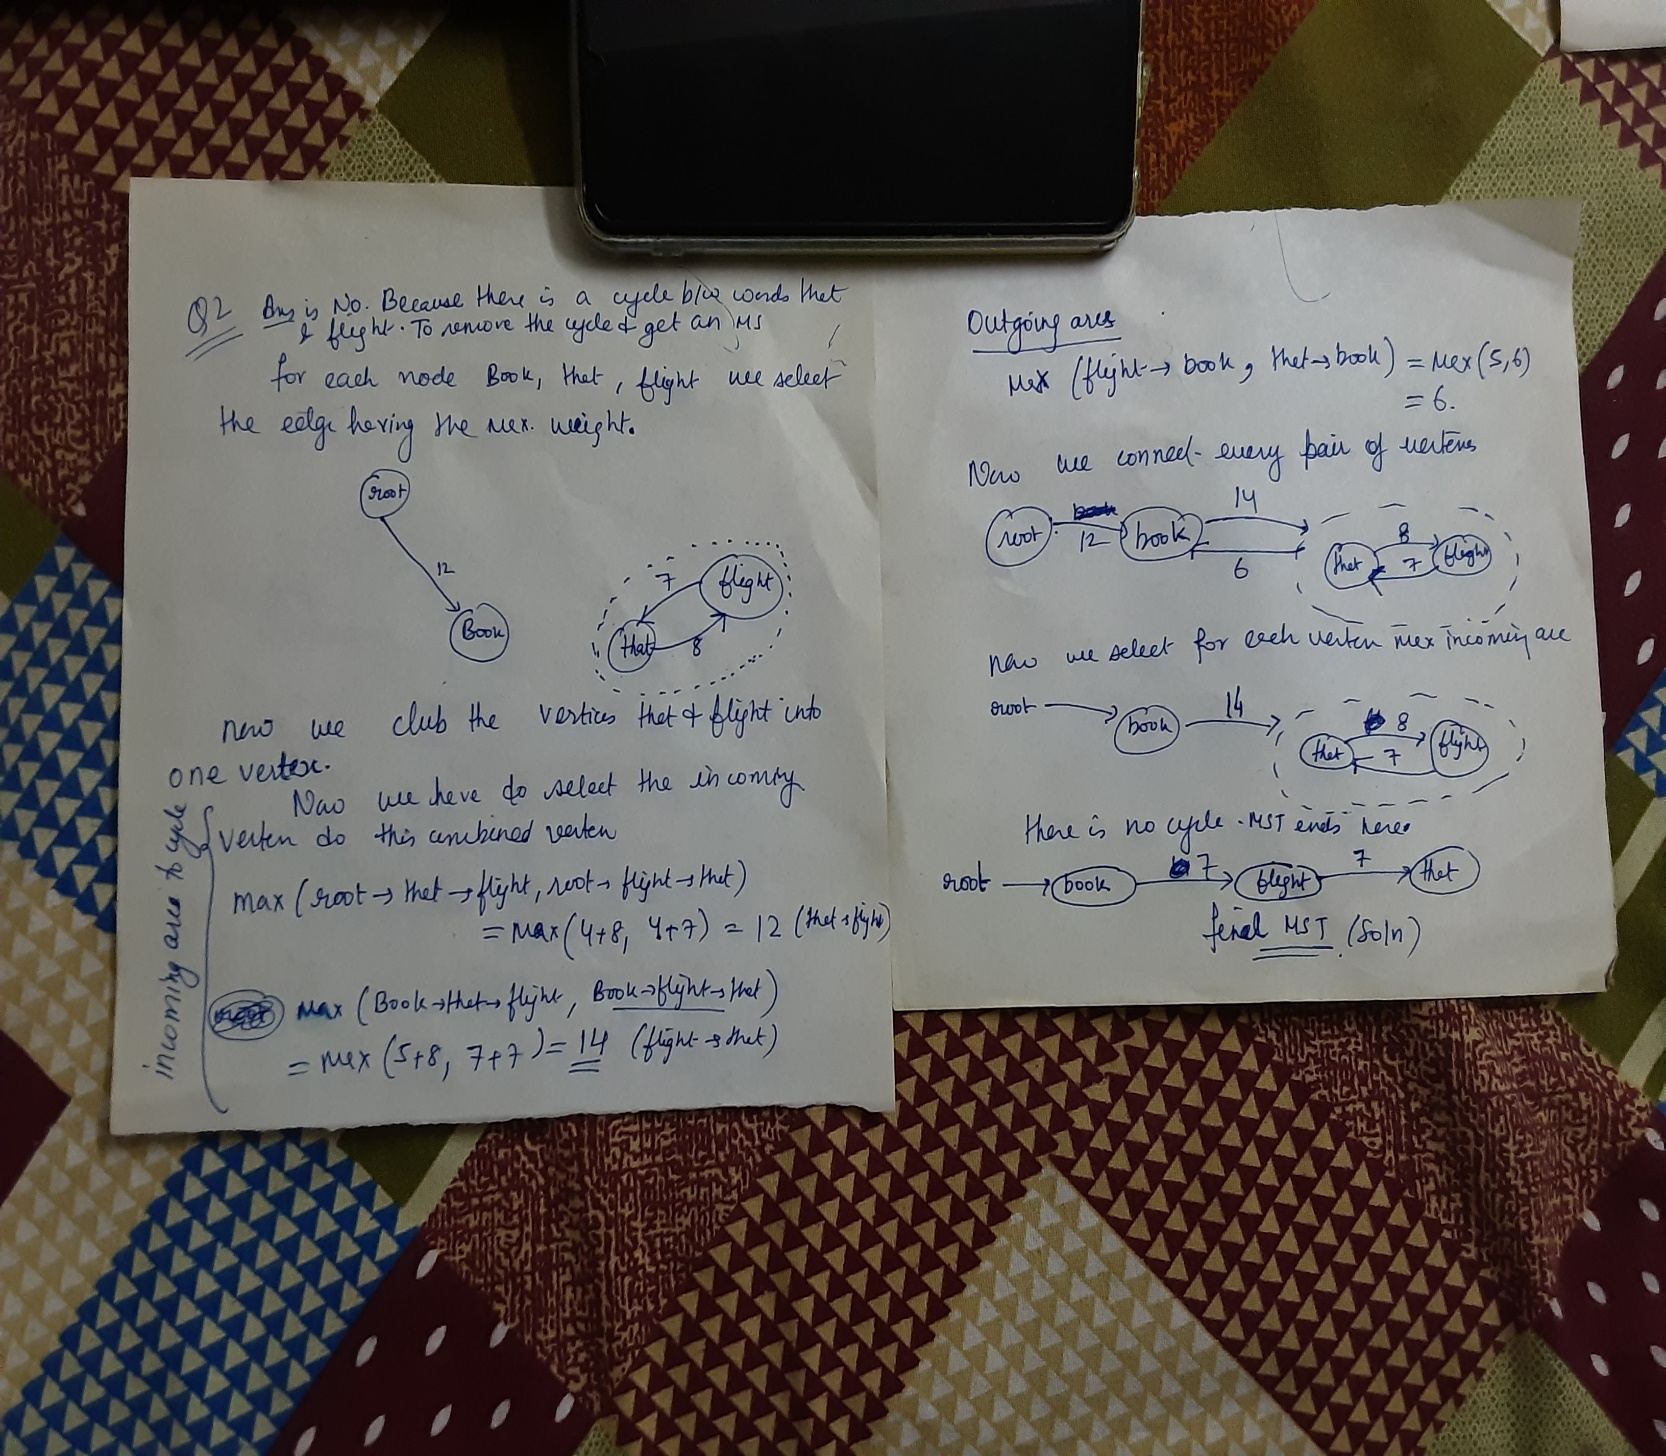 Q2 Ans is No. Because there is a cycle b/w words that
& flight. To remove the cycle & get an MS
for each node Book, that, flight we select
the edge having the max. weight.
root
12
Book
7
flight
that
8
now we club the vertices that & flight into
one vertex.
Now we have do select the incoming
verten do this combined verten
incoming arcs to cycle
max (root → that → flight, root → flight → that)
= max (4+8, 4+7) = 12 (that → flight)
max (Book → that → flight, Book → flight → that)
= max (5+8, 7+7) = 14 (flight → that)
Outgoing arcs
max (flight → book, that → book) = max (5,6)
= 6.
Now we connect every pair of vertexes
root 12 book 14 6 that 8 7 flight
now we select for each verten max incoming arc
root book 14 that 8 7 flight
there is no cycle. MST ends here.
root → book 7 flight 7 that
final MST (Soln)